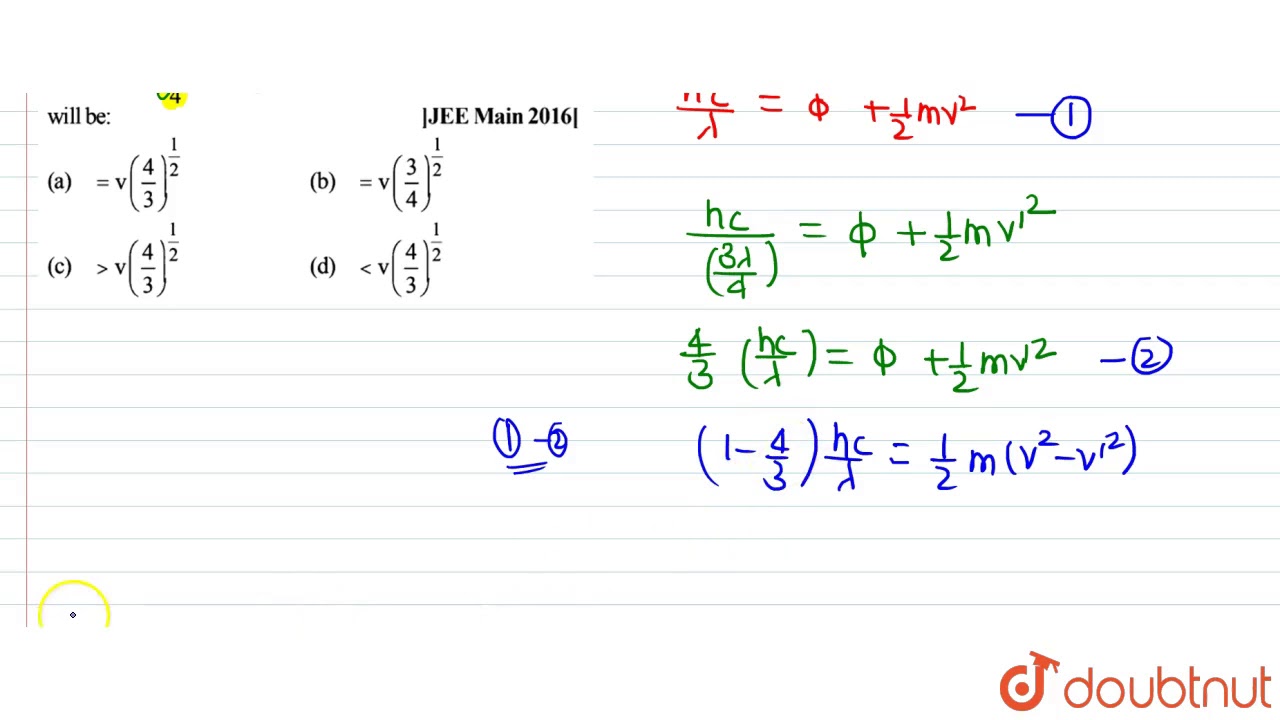 4
will be: |JEE Main 2016|
(a) = v(4/3)^1/2 (b) = v(3/4)^1/2
(c) > v(4/3)^1/2 (d) < v(4/3)^1/2
hc/λ = ϕ + 1/2 mv² — ①
hc/(3λ/4) = ϕ + 1/2 mv'²
4/3 (hc/λ) = ϕ + 1/2 mv² — ②
① – ② (1 – 4/3) hc/λ = 1/2 m(v² – v'²)
doubtnut